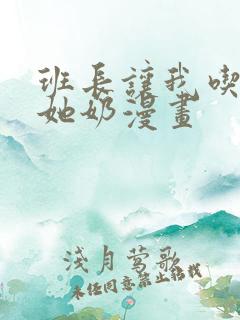 班长讓我喫
她奶漫畫
淺月莺歌
未经同意禁止转载